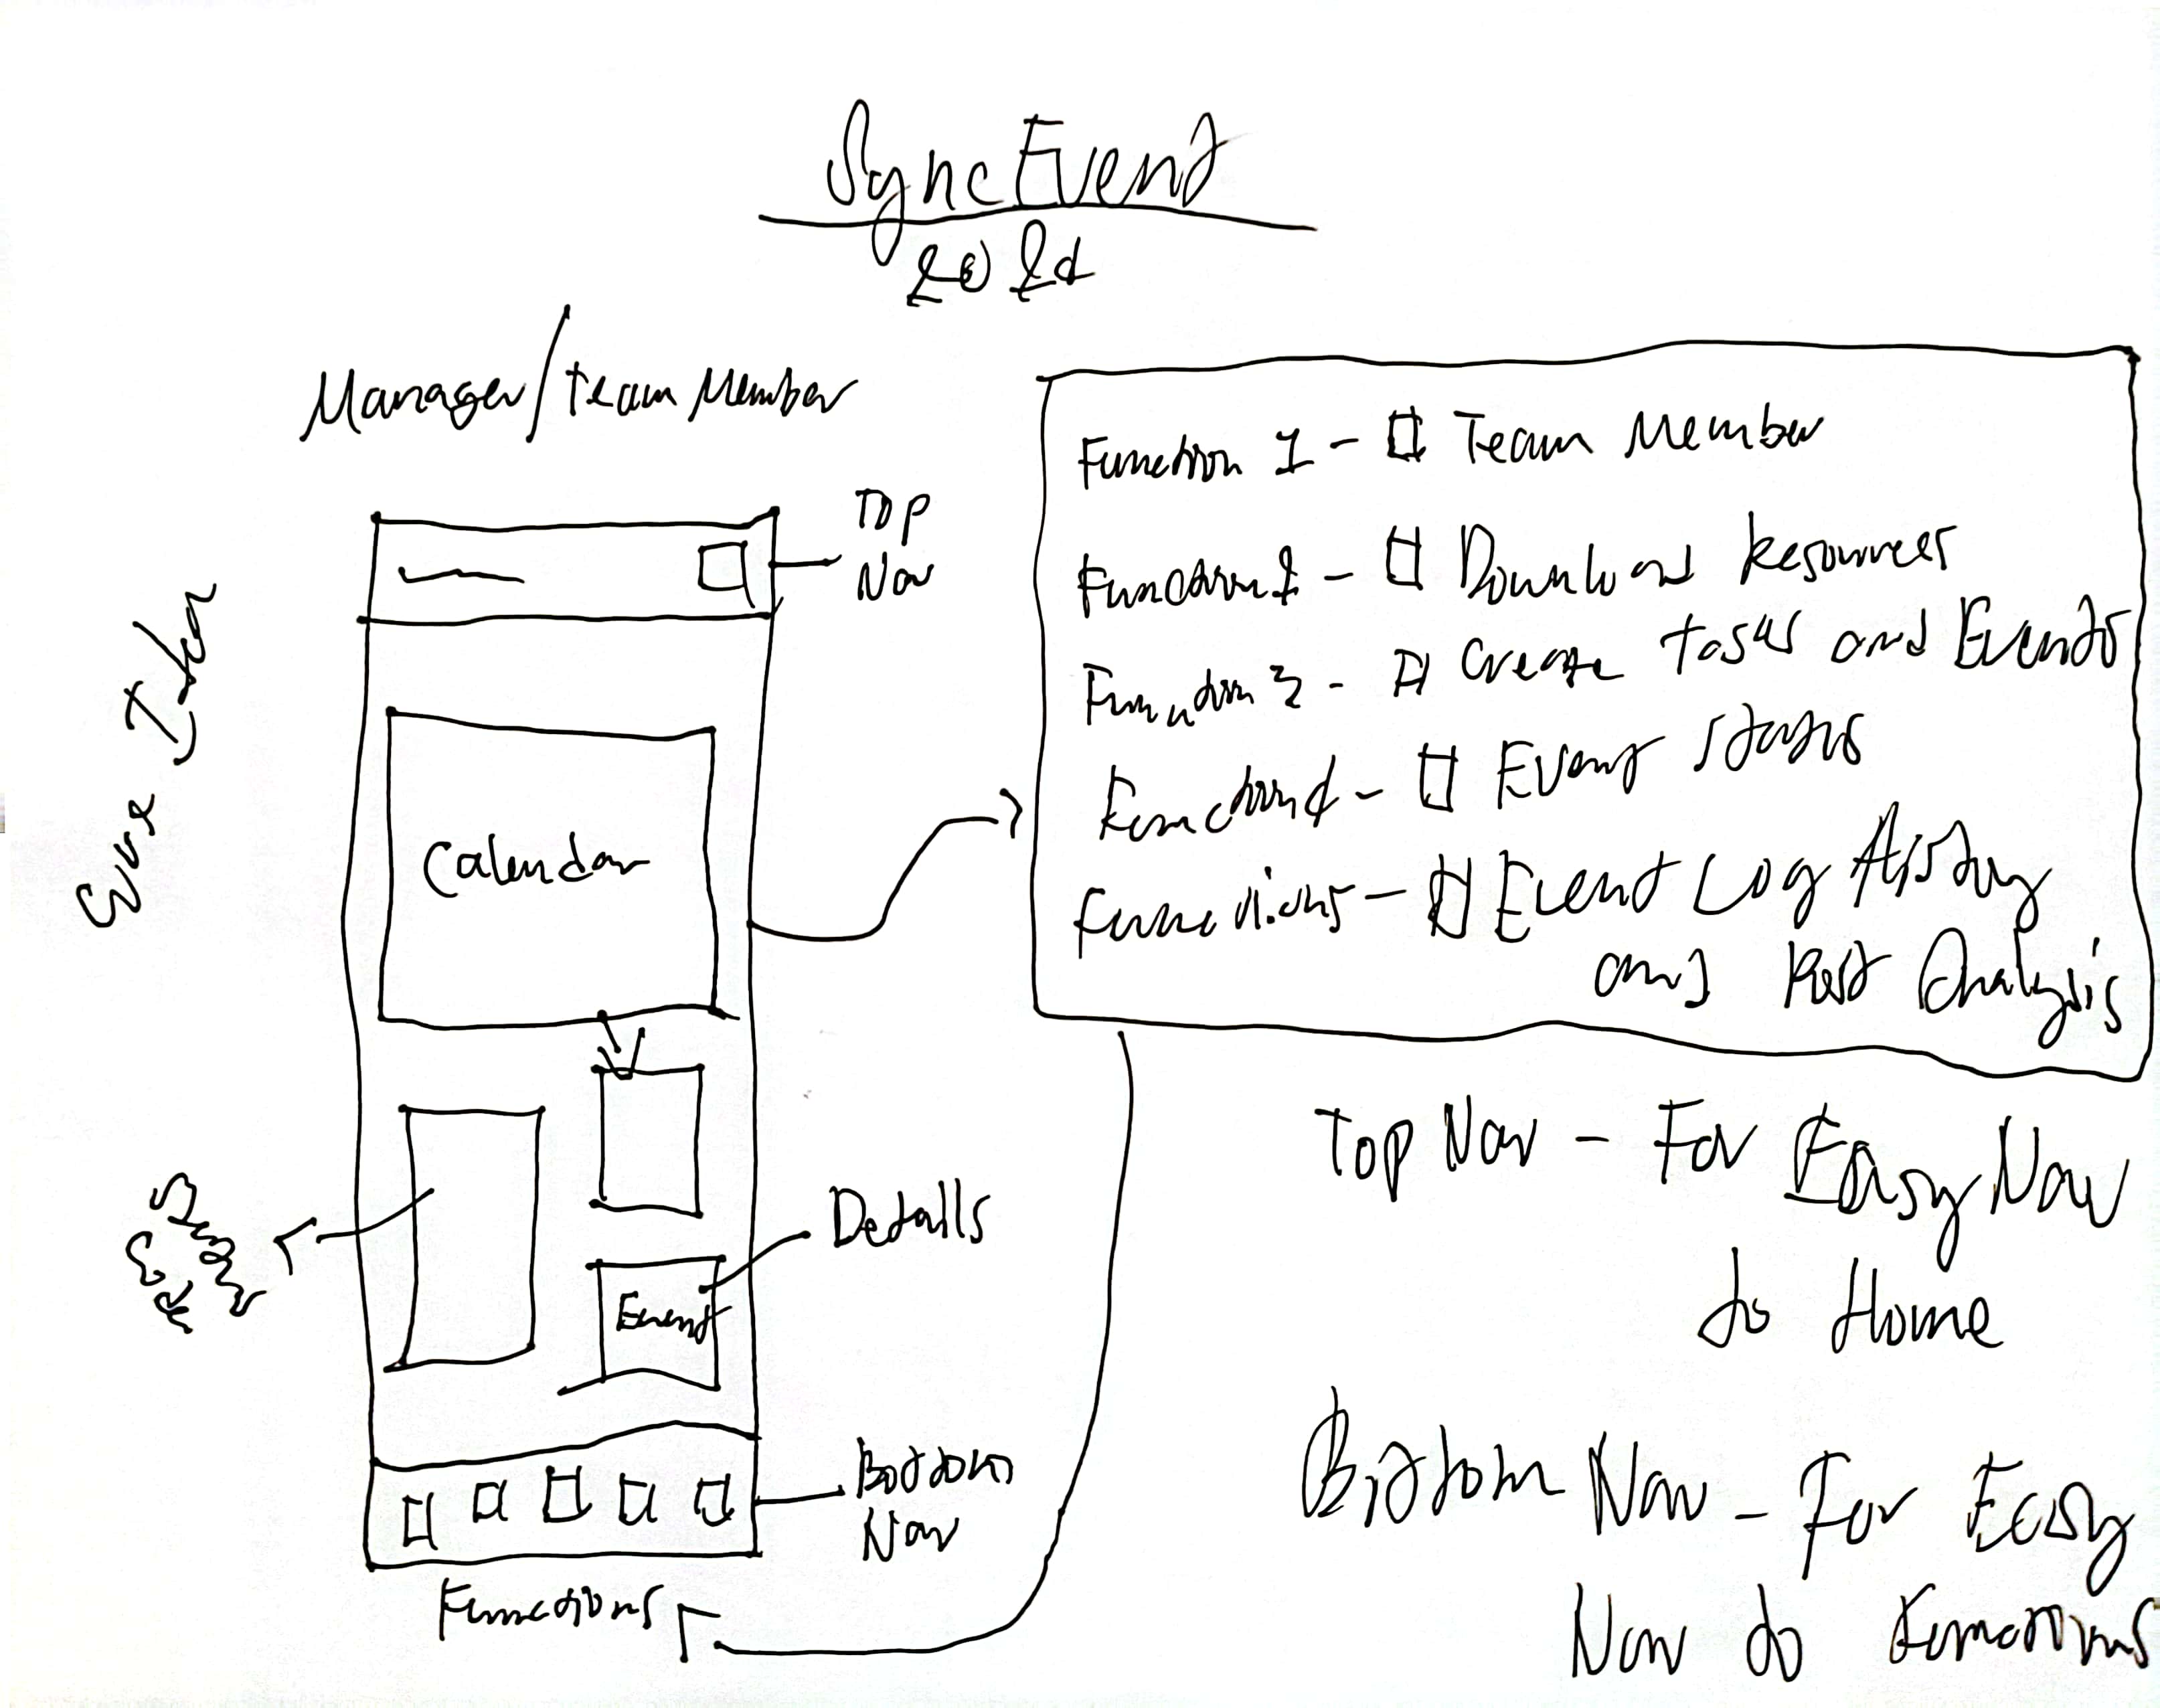 SyncEvent
2024
Manager/Team Member
Top
Nav
Calendar
Event
Details
Bottom
Nav
Functions
Function 1 - Team Member
Function 2 - Download Resources
Function 3 - Create tasks and Events
Function 4 - Event status
Function 5 - Event Log History
and Post Analysis
Top Nav - For Easy Nav
to Home
Bottom Nav - For Easy
Nav to Functions